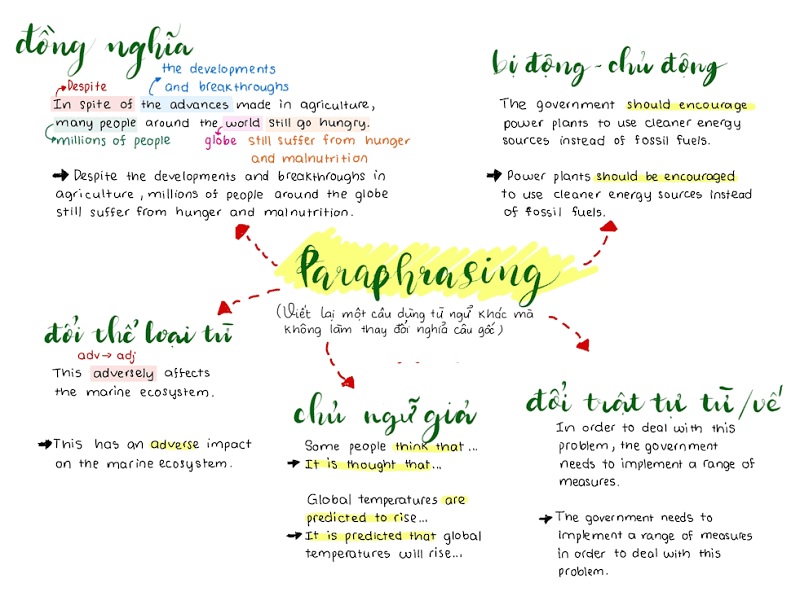 đồng nghĩa
the developments
Despite
and breakthroughs
In spite of the advances made in agriculture,
many people around the world still go hungry.
millions of people
globe
still suffer from hunger
and malnutrition
→ Despite the developments and breakthroughs in
agriculture, millions of people around the globe
still suffer from hunger and malnutrition.
bị động - chủ động
The government should encourage
power plants to use cleaner energy
sources instead of fossil fuels.
→ Power plants should be encouraged
to use cleaner energy sources instead
of fossil fuels.
Paraphrasing
(Viết lại một câu dùng từ ngữ khác mà
không làm thay đổi nghĩa câu gốc)
đổi thể loại từ
adv → adj
This adversely affects
the marine ecosystem.
→ This has an adverse impact
on the marine ecosystem.
chủ ngữ giả
Some people think that...
→ It is thought that...
Global temperatures are
predicted to rise...
→ It is predicted that global
temperatures will rise...
đổi trật tự từ/vế
In order to deal with this
problem, the government
needs to implement a range of
measures.
→ The government needs to
implement a range of measures
in order to deal with this
problem.